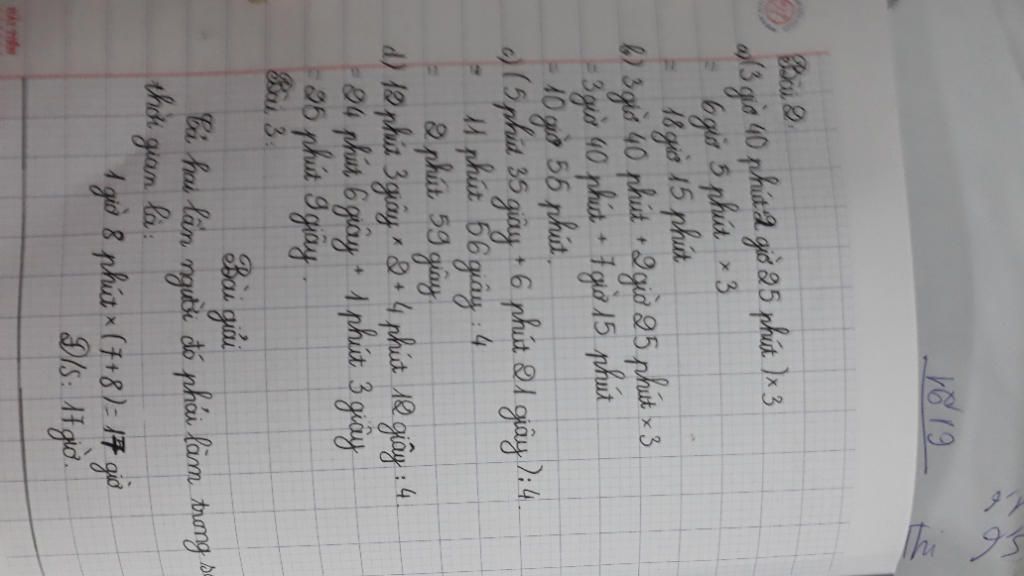 Bài 2.
a) (3 giờ 40 phút 2 giờ 25 phút) × 3
= 6 giờ 5 phút × 3
= 18 giờ 15 phút
b) 3 giờ 40 phút + 2 giờ 25 phút × 3
= 3 giờ 40 phút + 7 giờ 15 phút
= 10 giờ 55 phút.
c) (5 phút 35 giây + 6 phút 21 giây) : 4.
= 11 phút 56 giây : 4
= 2 phút 59 giây
d) 12 phút 3 giây × 2 + 4 phút 12 giây : 4.
= 24 phút 6 giây + 1 phút 3 giây
= 25 phút 9 giây.
Bài 3:
Bài giải
Cả hai lần người đó phải làm trong
thời gian là:
1 giờ 8 phút × (7+8) = 17 giờ
Đ/s: 17 giờ.